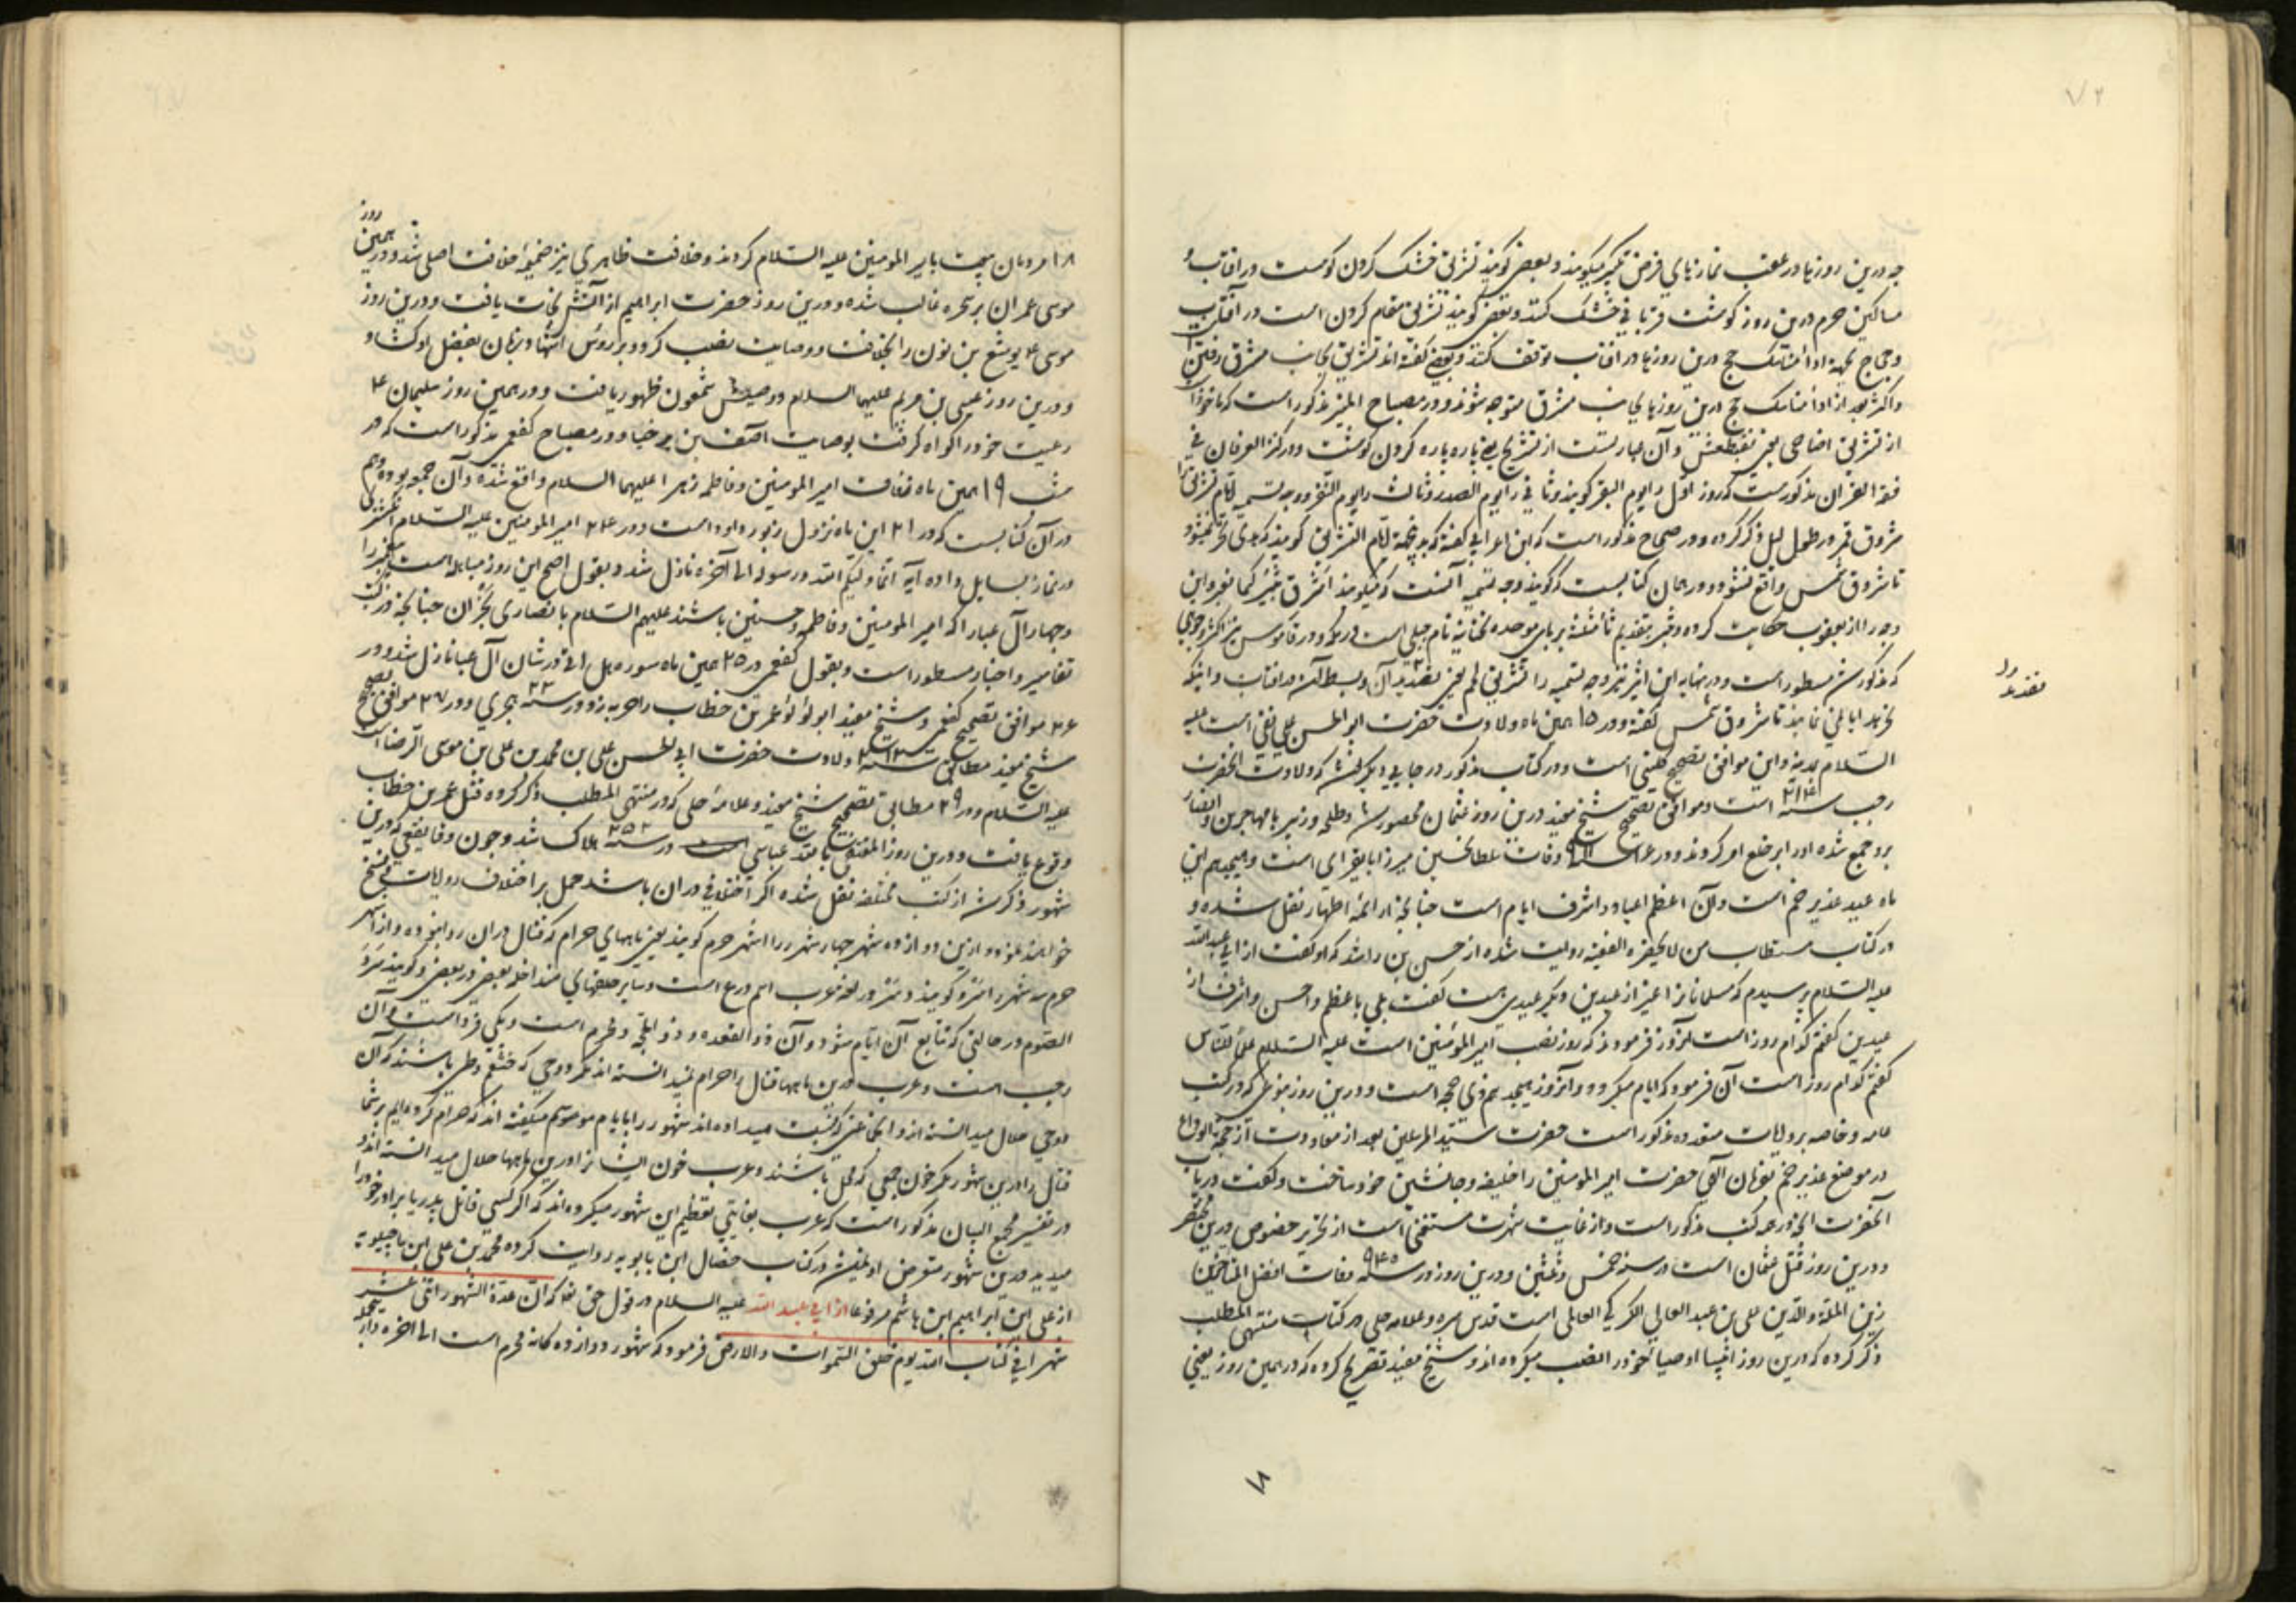 چه درین روزها در عقب نمازهای فرض تکبیر میکویند و بعضی کویند تشریق خشک کردن کوشت در آفتاب و
ساکنین حرم درین روز کوشت قربانی خشک کنند و بعضی کویند تشریق مقام کردن است در آفتاب
و حجاج بجهة ادا مناسک حج درین روزها در آفتاب توقف کنند و بعضی کفته اند تشریق بجانب مشرق رفتن
و اکثر بعد از ادا مناسک حج درین روزها بجانب مشرق متوجه شوند و در مصباح المنیر مذکور است که ماخوذ
از تشریق اضاحی یعنی تقطیعش و آن عبارتست از تشریح یعنی پاره پاره کردن کوشت و در کنز العرفان فی
فقه القرآن مذکورست که روز اول را یوم القر کویند و ثانی را یوم الصدر و ثالث را یوم النفر و وجه تسمیه ایام تشریق را
شروق قمر در طول لیل ذکر کرده و در صحاح مذکور است که ابن اعرابی کفته که بدینجهة ایام التشریق کویند که هدی نحر نمیشود
تا شروق شمس واقع نشود و در همان کتابست که کویند وجه تسمیه آنست که میکویند اشرق ثبیر کیما نغیر و این
وجه را از یعقوب حکایت کرده و ثبیر بتقدیم ثاء مثلثه بر باى موحده تحتانیه نام جبلی است در مکه و در قاموس نیز اکثر وجوهی
که مذکور شد مسطور است و در نهایه ابن اثیر نیز وجه تسمیه را تشریق لحم یعنی تقدید آن و بسط آن در آفتاب و اینکه
نحر هدایا نمی نمایند تا شروق شمس کفته و در ۱۵ همین ماه ولادت حضرت ابو الحسن علی نقی است علیه
السلام بمدینه و این موافق تصحیح کفعمی است و در کتاب مذکور در جایی دیکر کفته که ولادت انحضرت
رجب سنه ۲۱۴ است و موافق تصحیح شیخ مفید درین روز عثمان محصور شد و طلحه و زبیر با مهاجرین و انصار
برو جمع شده او را بر خلع امر کردند و در سنه ۹۱۱ وفات سلطانحسین میرزا بایقرای است و هیجدهم این
ماه عید غدیر خم است و آن اعظم اعیاد و اشرف ایام است چنانچه از ائمه اطهار نقل شده و
در کتاب مستطاب من لا یحضره الفقیه روایت شده از حسن بن راشد که او کفت از ابی عبد الله
علیه السلام پرسیدم که مسلمانان را غیر از عیدین دیکر عیدی هست کفت بلی با عظم و احسن و اشرف از
عیدین کفتم کدام روز است آنروز فرمودند که روز نصب امیر المؤمنین است علیه السلام علما للناس
کفتم کدام روز است آن فرمود که ایام میکردد و آنروز هیجدهم ذی حجه است و درین روز بنوعی که در کتب
عامه و خاصه بروایات متعدده مذکور است حضرت سید المرسلین بعد از معاودت از حجة الوداع
در موضع غدیر خم بفرمان الهی حضرت امیر المومنین را خلیفه و جانشین خود ساخت و کفت در باب
آنحضرت آنچه در همه کتب مذکور است و از غایت شهرت مستغنی است از تحریر خصوص درین مختصر
و درین روز قتل عثمان است در سنه خمس و ثلثین و درین روز در سنه ۹۴۰ وفات افضل المتاخرین
زین الملة والدین علی بن عبد العالی الکرکی العاملی است قدس سره و علامه حلی در کتاب منتهی المطلب
ذکر کرده که درین روز انبیا اوصیاء خود را نصب میکرده اند و شیخ مفید تصریح کرده که در همین روز یعنی
۱۸ مردمان بیعت بامیر المومنین علیه السلام کردند و خلافت ظاهری نیز ضمیمه خلافت اصلی شد و درین همین روز
موسی عمران بر سحره غالب شده و درین روز حضرت ابراهیم از آتش نجات یافت و درین روز
موسی ع یوشع بن نون را بخلافت و وصایت نصب کرد و بر رؤس اشهاد زبان بفضل او کشاد
و درین روز عیسی بن مریم علیهما السلام وصیتش شمعون ظهور یافت و در همین روز سلیمان ع
رعیت خود را کواه کرفت بوصایت آصف بن برخیا و در مصباح کفعمی مذکور است که در
شب ۱۹ همین ماه زفاف امیر المومنین و فاطمه زهرا علیهما السلام واقع شده و آن جمعه بوده و هم
در آن کتابست که در ۲۱ این ماه نزول زبور داود است و در ۲۴ امیر المومنین علیه السلام انکشتری
در نماز بسایل داده آیه انما ولیکم الله و رسوله الی آخره نازل شد و بقول اصح این روز مباهله است پیغمبر را
و چهار آل عبا را که امیر المومنین و فاطمه و حسنین باشند علیهم السلام با نصاری نجران چنانچه در کتب
تفاسیر و اخبار مسطور است و بقول کفعمی در ۲۵ همین ماه سوره هل اتی در شان آل عبا نازل شد و در
۲۶ موافق تصحیح کفعمی و شیخ مفید ابو لؤلؤ عمر بن خطاب را حربه زد در سنه ۲۳ هجری و در ۲۷ موافق تصحیح
شیخ مفید مطابق سنه ۲۱۲ ولادت حضرت ابی الحسن علی بن محمد بن علی بن موسی الرضا است
علیه السلام و در ۲۹ مطابق تصحیح شیخ مفید و علامه حلی که در منتهی المطلب ذکر کرده قتل عمر بن خطاب
وقوع یافت و درین روز المقتدر بالله عباسی در سنه هلاک شد و چون وقایعی که درین
شهور ذکر شد از کتب مختلفه نقل شده اکر اختلافی در ان باشد حمل بر اختلاف روایات و نسخ
خواهند فرمود و ازین دوازده شهر چهار شهر را اشهر حرم کویند یعنی ماههای حرام که قتال دران روا نبوده و از اشهر
حرم سه شهر را سرد کویند و سرد در لغه عرب اسم درع است و سایر حلقهای متداخله بعضی در بعضی و کویند سرد
الصوم در حالتی که تتابع آن ایام شود و آن ذو القعده و ذو الحجه و محرم است و یکی فرد است و آن
رجب است و عرب درین ماهها قتال را حرام میدانسته اند مکر دو حی که خثعم و طی باشند که آن
دو حی حلال میدانسته اند و انجماعتی که نسبت میداده اند شهور را بایام موسم میکفته اند که حرام کرده ایم بر شما
قتال را درین شهور مکر خون جمعی که محل باشند و عرب خون ایشان را درین ماهها حلال میدانسته اند و
در تفسیر مجمع البیان مذکور است که عرب بغایتی تعظیم این شهور میکرده اند که اکر کسی قاتل پدر یا برادر خود را
میدید درین شهور متعرض او نمیشد و در کتاب خصال ابن بابویه روایت کرده محمد بن علی ابن ماجیلویه
از علی ابن ابراهیم ابن هاشم مرفوعا از ابی عبد الله علیه السلام در قول حق تعا که ان عدة الشهور اثنی عشر
شهرا فی کتاب الله یوم خلق السموات و الارض فرمود که شهور دوازده کانه محرم است الی اخره و از جمله